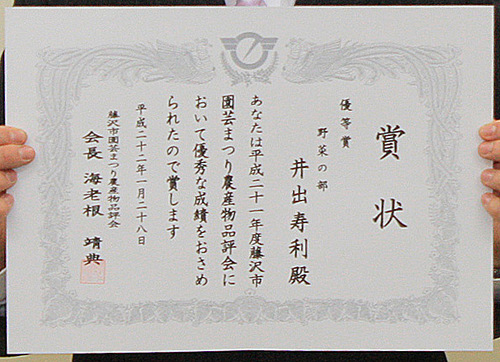 賞状
優等賞
野菜の部
井出寿利殿
あなたは平成二十一年度藤沢市
園芸まつり農産物品評会に
おいて優秀な成績をおさめ
られたので賞します
平成二十二年一月二十八日
藤沢市園芸まつり農産物品評会
会長 海老根 靖典